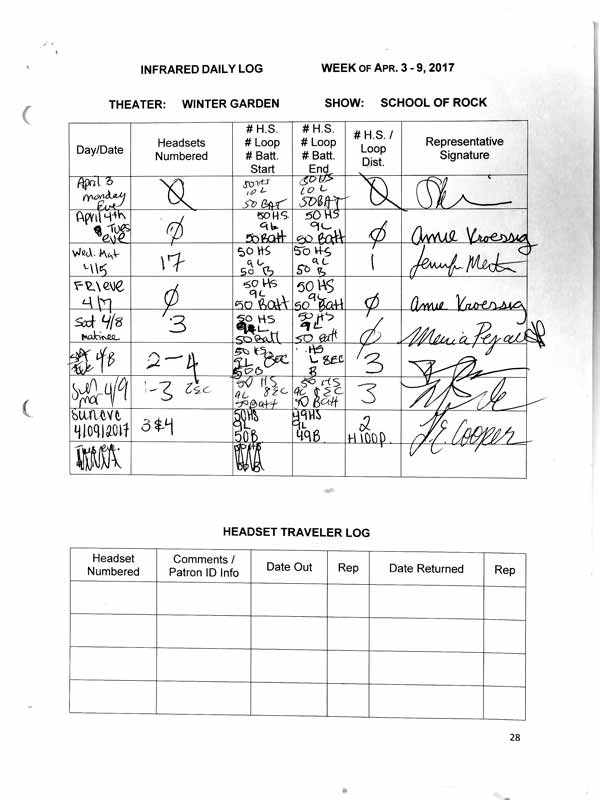 INFRARED DAILY LOG WEEK OF APR. 3 - 9, 2017
THEATER: WINTER GARDEN SHOW: SCHOOL OF ROCK
Day/Date
Headsets
Numbered
# H.S.
# Loop
# Batt.
Start
# H.S.
# Loop
# Batt.
End
# H.S. /
Loop
Dist.
Representative
Signature
April 3
monday
Eve
0
50 HS
10 L
50 BAT
50 HS
10 L
50 BAT
0
April 4th
Tues
eve
Ø
50 HS
9L
50 Batt
50 HS
9L
50 Batt
Ø
Annie Kroessig
Wed. Mat
4/5
17
50 HS
9L
50 B
50 HS
9L
50 B
1
FRI eve
4/7
Ø
50 HS
9L
50 Batt
50 HS
9L
50 Batt
Ø
Annie Kroessig
Sat 4/8
matinee
3
50 HS
9L
50 Batt
50 HS
9L
50 Batt
Ø
4/8
2-4
50 HS
9L 8EC
50 B
HS
L 8EC
B
3
Sun 4/9
mat
1-3
50 HS
9L 8EC
50 Batt
50 HS
9L 8EC
50 Batt
3
Sun eve
4/09/2017
3&4
50HS
9L
50B
49HS
9L
49B
2
H 100P.
J.E. Cooper
HEADSET TRAVELER LOG
Headset
Numbered
Comments /
Patron ID Info
Date Out
Rep
Date Returned
Rep
28